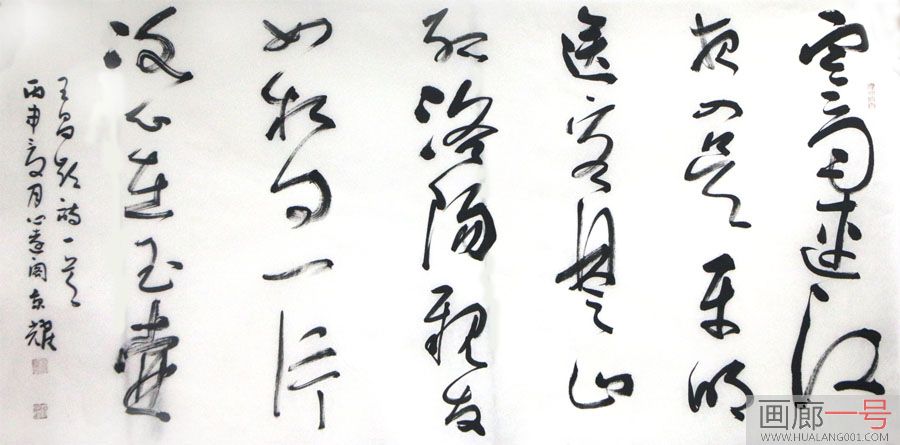 寒雨連江
夜入吴平明
送客楚山
孤洛陽親友
如相问一片
冰心在玉壺
王昌龄诗一首
丙申夏月心遠
画廊一号
WWW.HUALANG001.COM